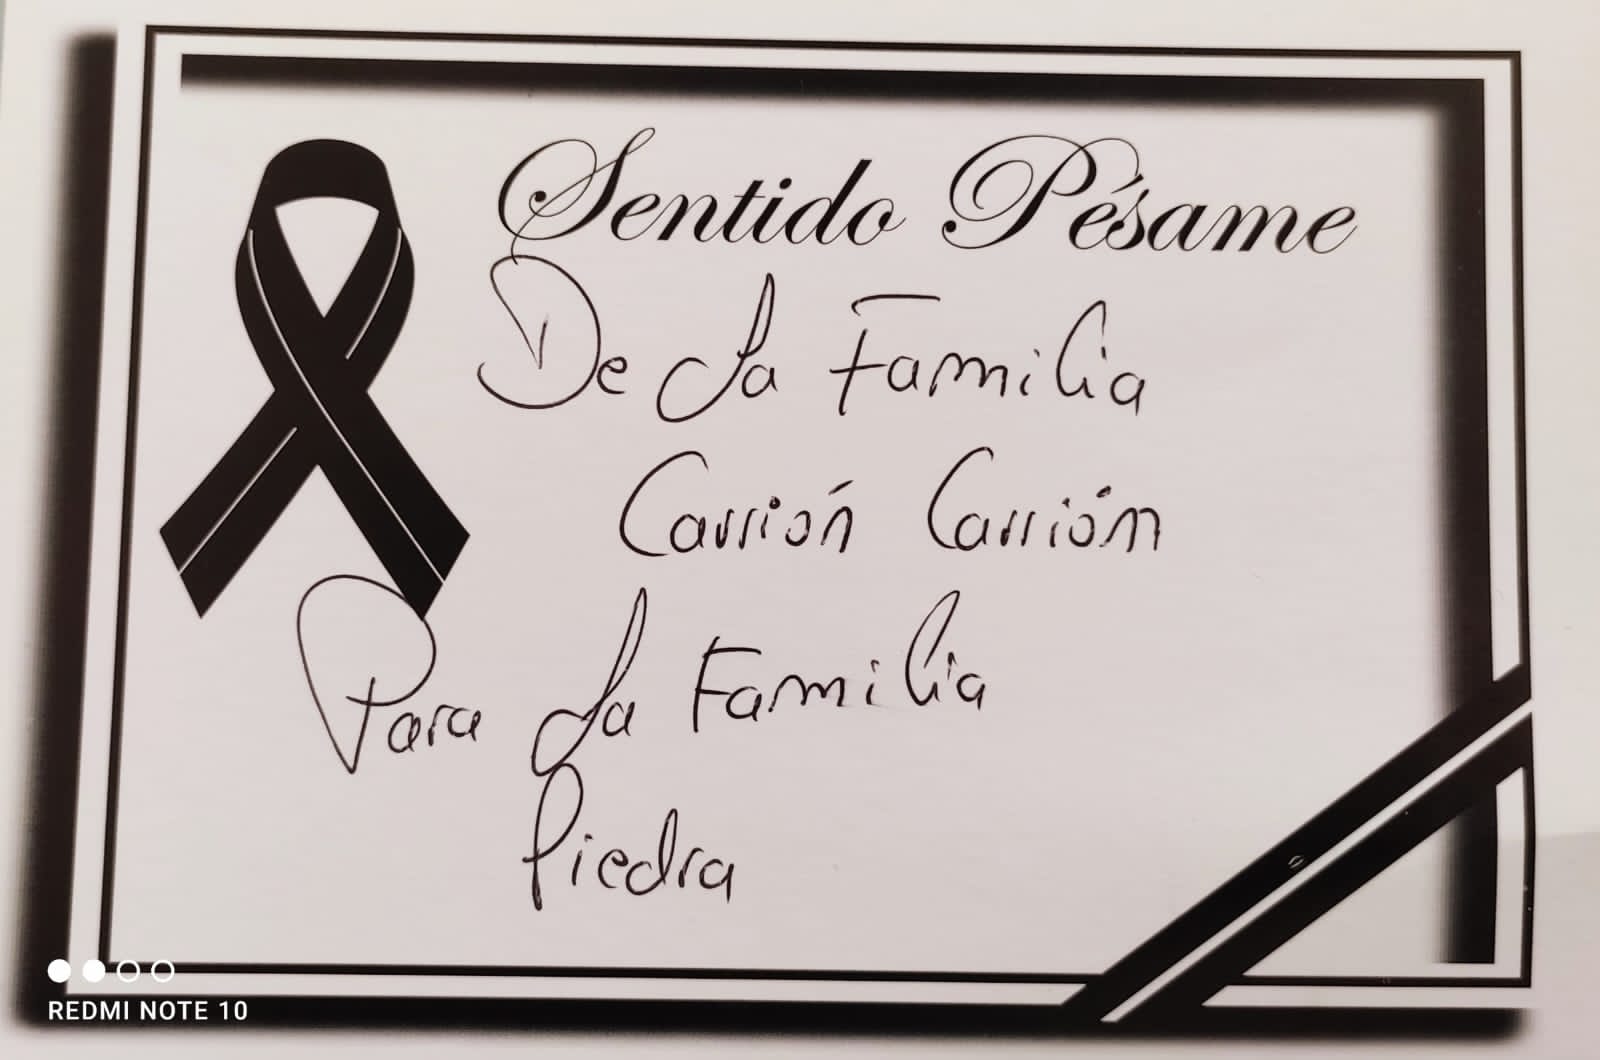 Sentido Pésame
De La Familia
Carrión Carrión
Para La Familia
Piedra
REDMI NOTE 10